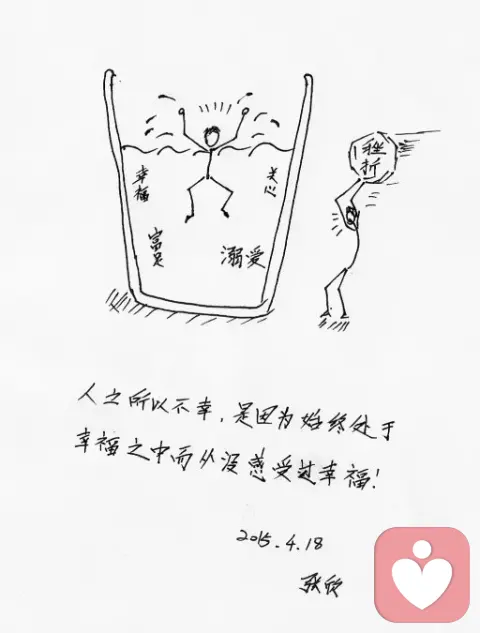 挫
折
幸福
关心
富足
溺爱
人之所以不幸，是因为始终处于
幸福之中而从没感受过幸福！
2015.4.18
张欣